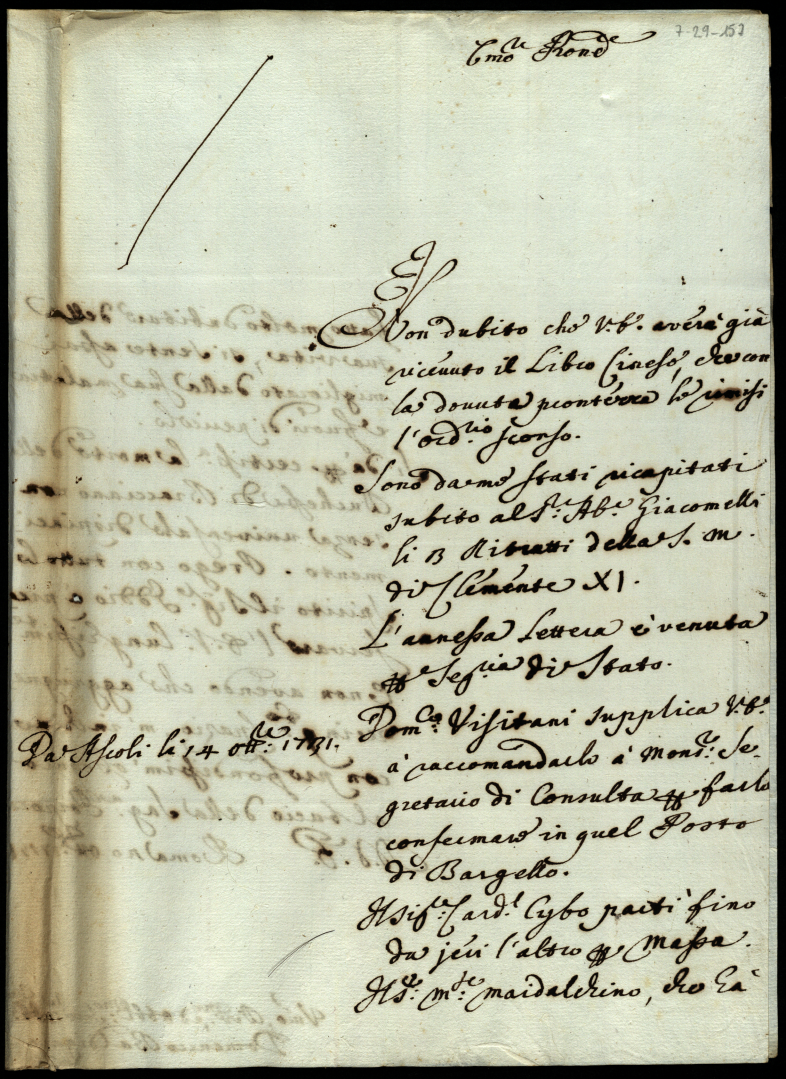 7-29-157
Emo e Rone
Non dubito che V.E. averà già
ricevuto il Libro Cinese, che con
la dovuta prontezza le rimisi
l'ord.rio scorso.
Sono da me stati ricapitati
subito al S.r Ab.e Giacomelli
li 13 Ritratti della S. M.
di Clemente XI.
L'annessa Lettera è venuta
Seg.ria di Stato.
Dom.co Visitani supplica V.E.
Da Ascoli li 14 Ott.re 1731.
à raccomandarlo à Mons.r Se-
gretario di Consulta farlo
confermare in quel Posto
di Bargello.
Il Sig.r Card.l Cybo partì fino
da jeri l'altro Massa.
Il S.r M.se Maidalchino, che hà